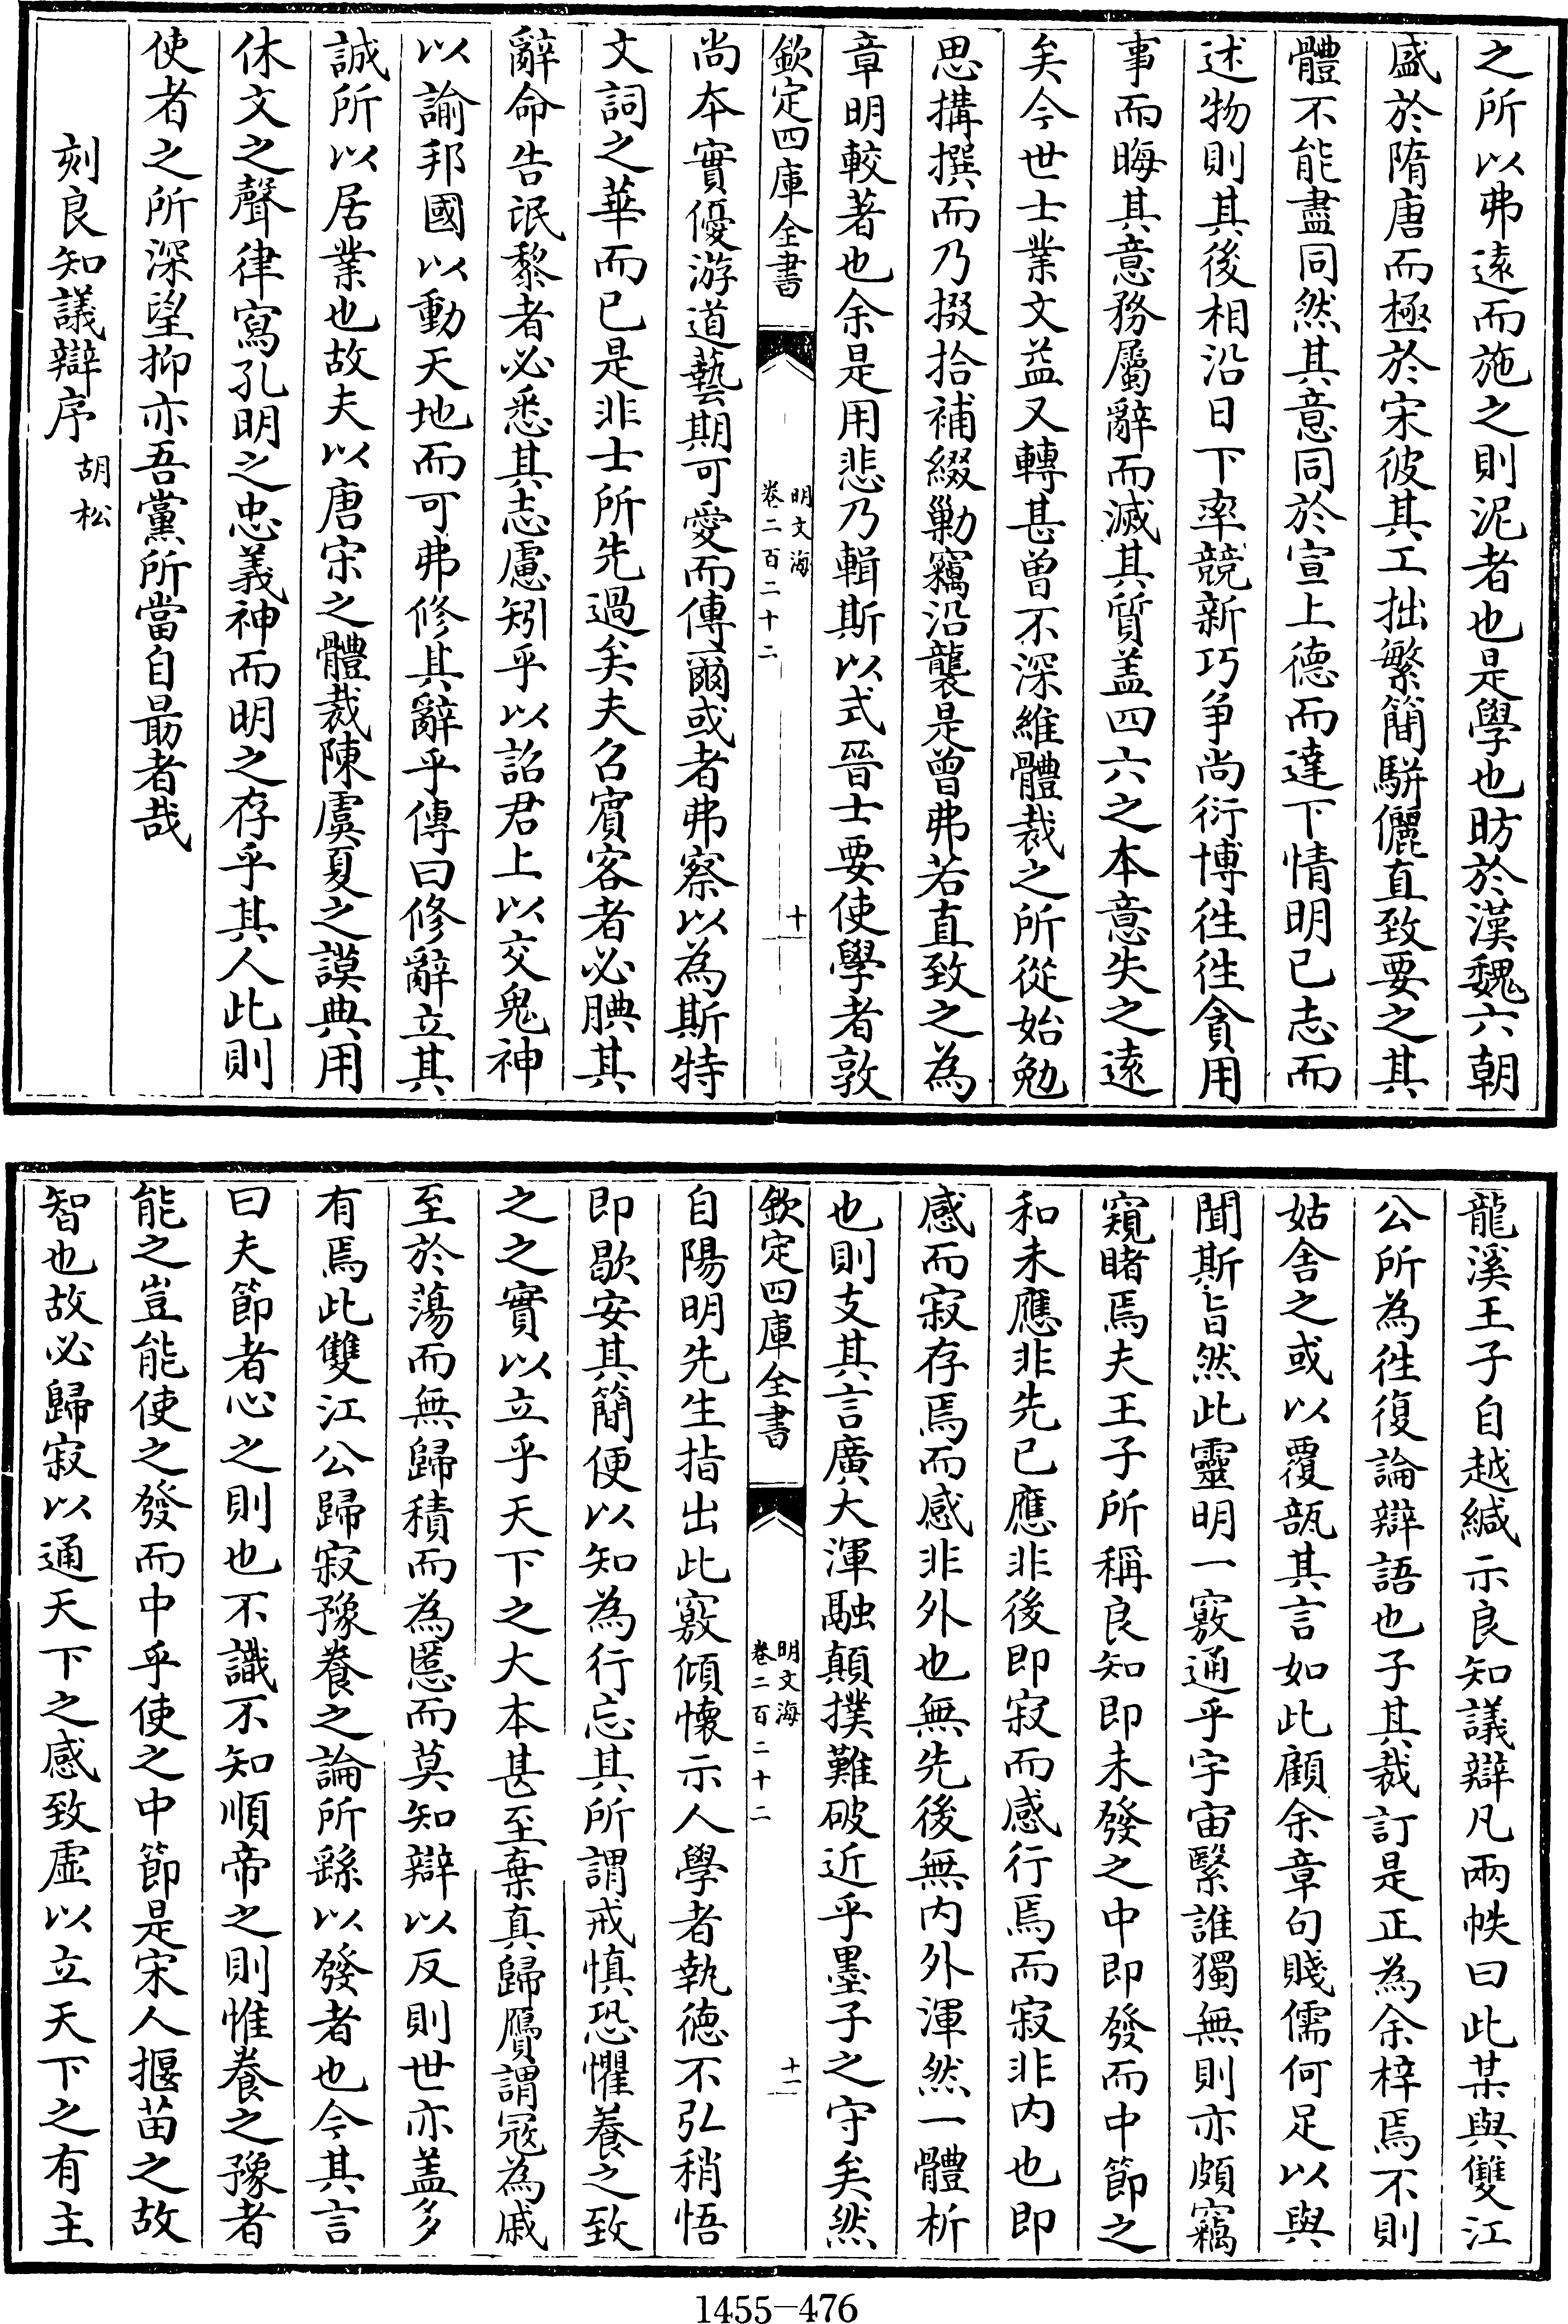 之所以弗遠而施之則泥者也是學也昉於漢魏六朝
盛於隋唐而極於宋彼其工拙繁簡駢儷直致要之其
體不能盡同然其意同於宣上德而達下情明已志而
述物則其後相沿日下率競新巧争尚衍博徃徃貪用
事而晦其意務屬辭而滅其質盖四六之本意失之遠
矣今世士業文益又轉甚曽不深維體裁之所從始勉
思搆撰而乃掇拾補綴勦竊沿襲是曾弗若直致之為
章明較著也余是用悲乃輯斯以式晉士要使學者敦
欽定四庫全書
明文海
卷二百二十二
十
尚本實優游道藝期可愛而傳爾或者弗察以為斯特
文詞之華而已是非士所先過矣夫召賓客者必腆其
辭命告氓黎者必悉其志慮矧乎以詔君上以交鬼神
以諭邦國以動天地而可弗修其辭乎傳曰修辭立其
誠所以居業也故夫以唐宋之體裁陳虞夏之謨典用
休文之聲律寫孔明之忠義神而明之存乎其人此則
使者之所深望抑亦吾黨所當自勗者哉
刻良知議辯序
胡松
龍溪王子自越緘示良知議辯凡兩帙曰此某與雙江
公所為徃復論辯語也子其裁訂是正為余梓焉不則
姑舍之或以覆瓿其言如此顧余章句賤儒何足以與
聞斯旨然此靈明一竅通乎宇宙繄誰獨無則亦頗竊
窺睹焉夫王子所稱良知即未發之中即發而中節之
和未應非先已應非後即寂而感行焉而寂非内也即
感而寂存焉而感非外也無先後無内外渾然一體析
也則支其言廣大渾融顛撲難破近乎墨子之守矣然
欽定四庫全書
明文海
卷二百二十二
十一
自陽明先生指出此竅傾懷示人學者執徳不弘稍悟
即歇安其簡便以知為行忘其所謂戒慎恐懼養之致
之之實以立乎天下之大本甚至棄真歸贋謂冦為戚
至於蕩而無歸積而為慝而莫知辯以反則世亦盖多
有焉此雙江公歸寂豫養之論所繇以發者也今其言
曰夫節者心之則也不識不知順帝之則惟養之豫者
能之豈能使之發而中乎使之中節是宋人揠苗之故
智也故必歸寂以通天下之感致虚以立天下之有主
1455-476